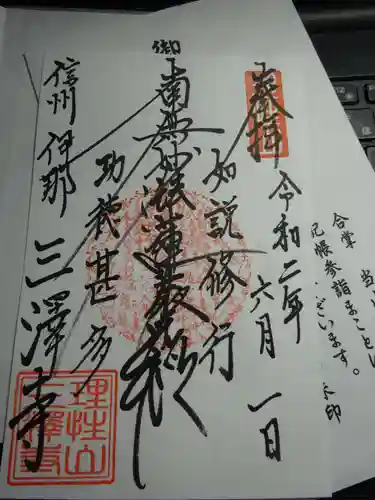 奉拝
令和二年六月一日
如説修行
御首題
南無妙法蓮華経
功徳甚多
信州伊那
三澤寺
理性山
三澤寺
合掌
記帳参詣まことに
ございます。